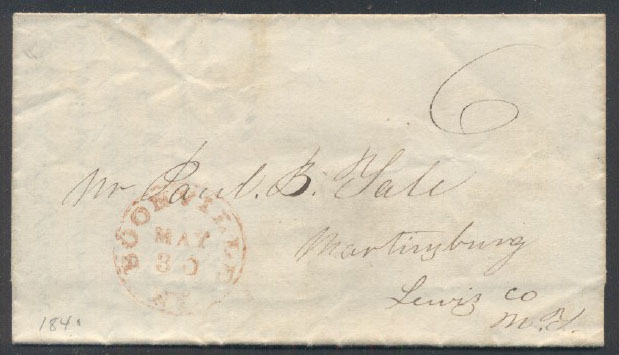 6
Mr Paul. B. Yale
Martinsburg
Lewis co
N.Y.
BOONVILLE
MAY
30